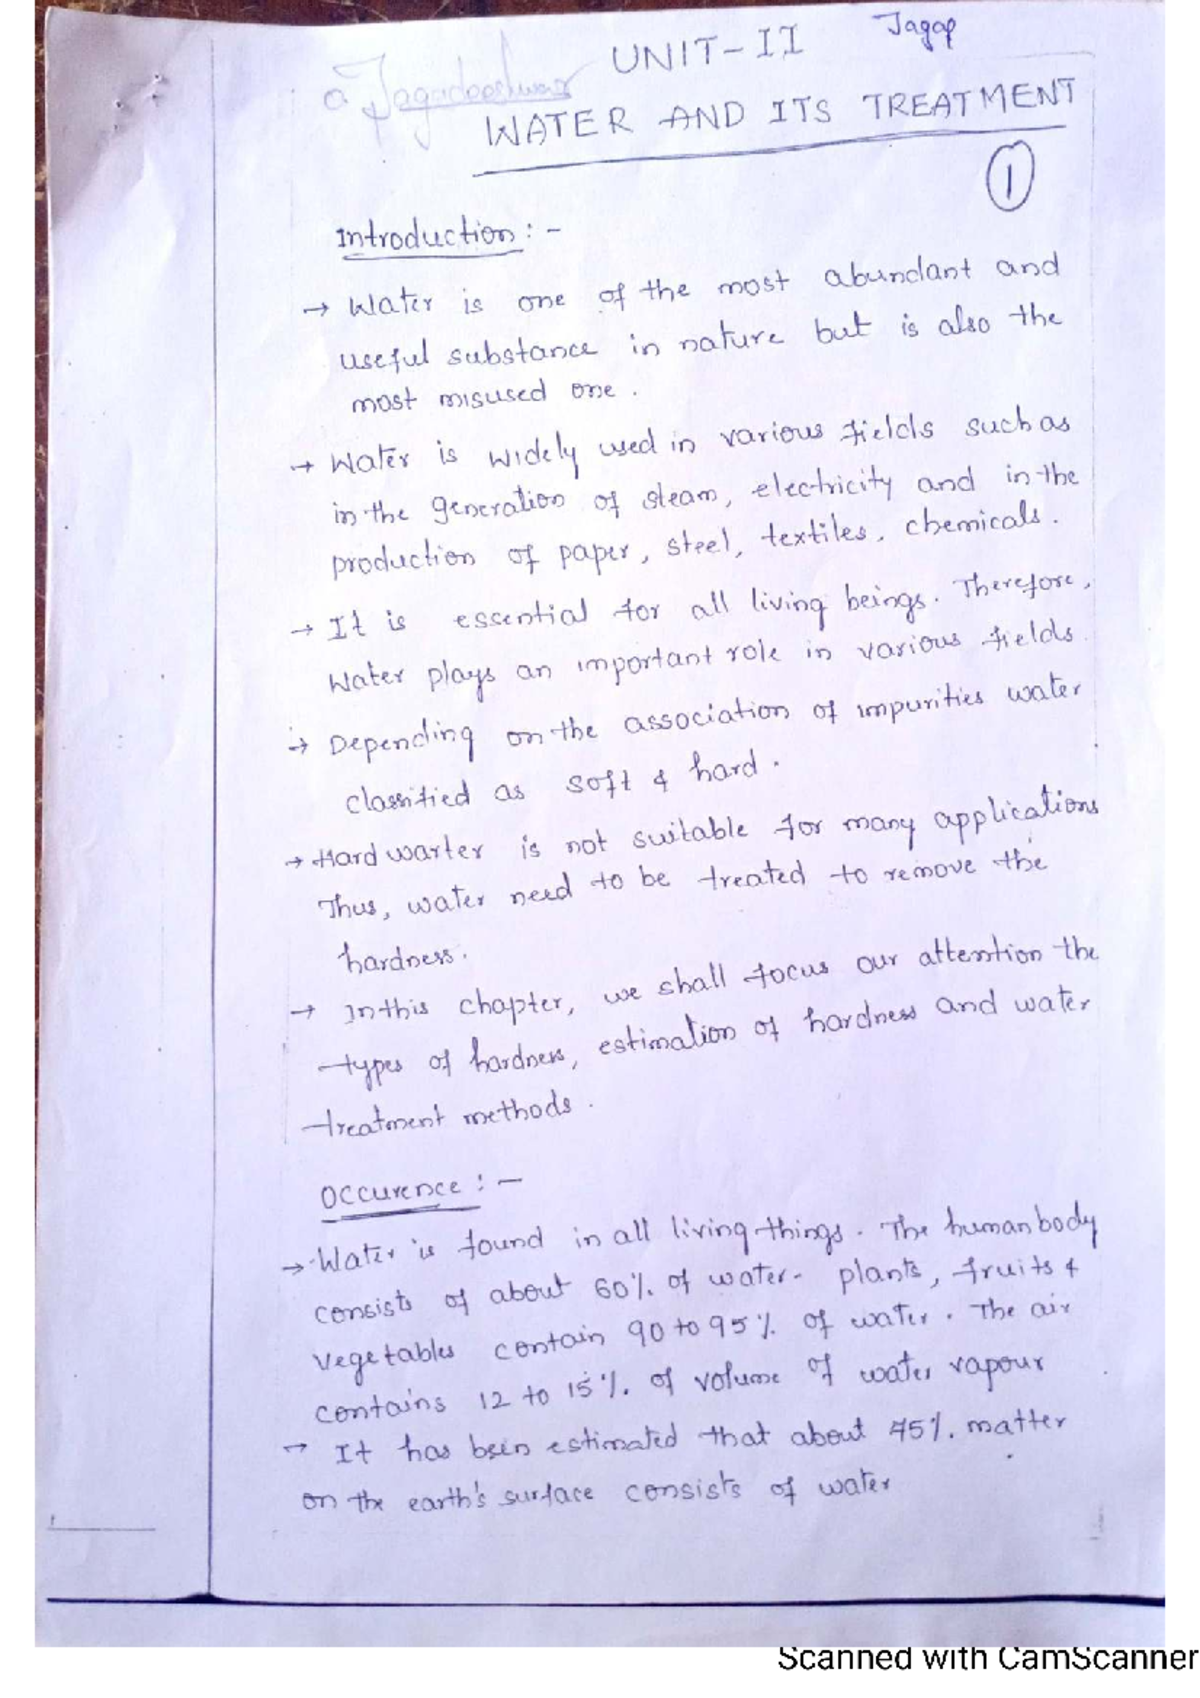 UNIT-II
Jagap
a Jagadeeshwar
WATER AND ITS TREATMENT
1
Introduction :-
→ Water is one of the most abundant and
useful substance in nature but is also the
most misused one.
→ Water is widely used in various fields such as
in the generation of steam, electricity and in the
production of paper, steel, textiles, chemicals.
→ It is essential for all living beings. Therefore,
Water plays an important role in various fields.
→ Depending on the association of impurities water
classified as soft & hard.
→ Hard warter is not suitable for many applications
Thus, water need to be treated to remove the
hardness.
→ In this chapter, we shall focus our attention the
types of hardness, estimation of hardness and water
treatment methods.
Occurence :-
→ Water is found in all living things. The human body
consists of about 60% of water. plants, fruits &
vegetables contain 90 to 95% of water. The air
contains 12 to 15%. of volume of water vapour
→ It has been estimated that about 75%. matter
on the earth's surface consists of water
Scanned with CamScanner